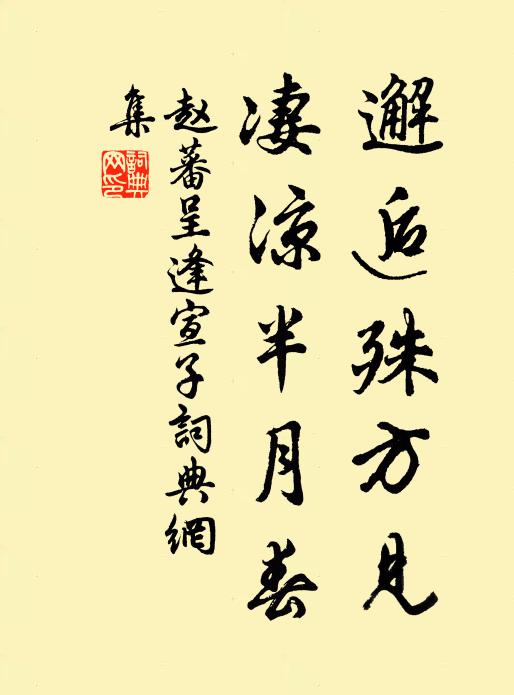 邂逅殊方見
凄涼半月春
赵蕃呈逢宣子詞典網
集
詞典
网印